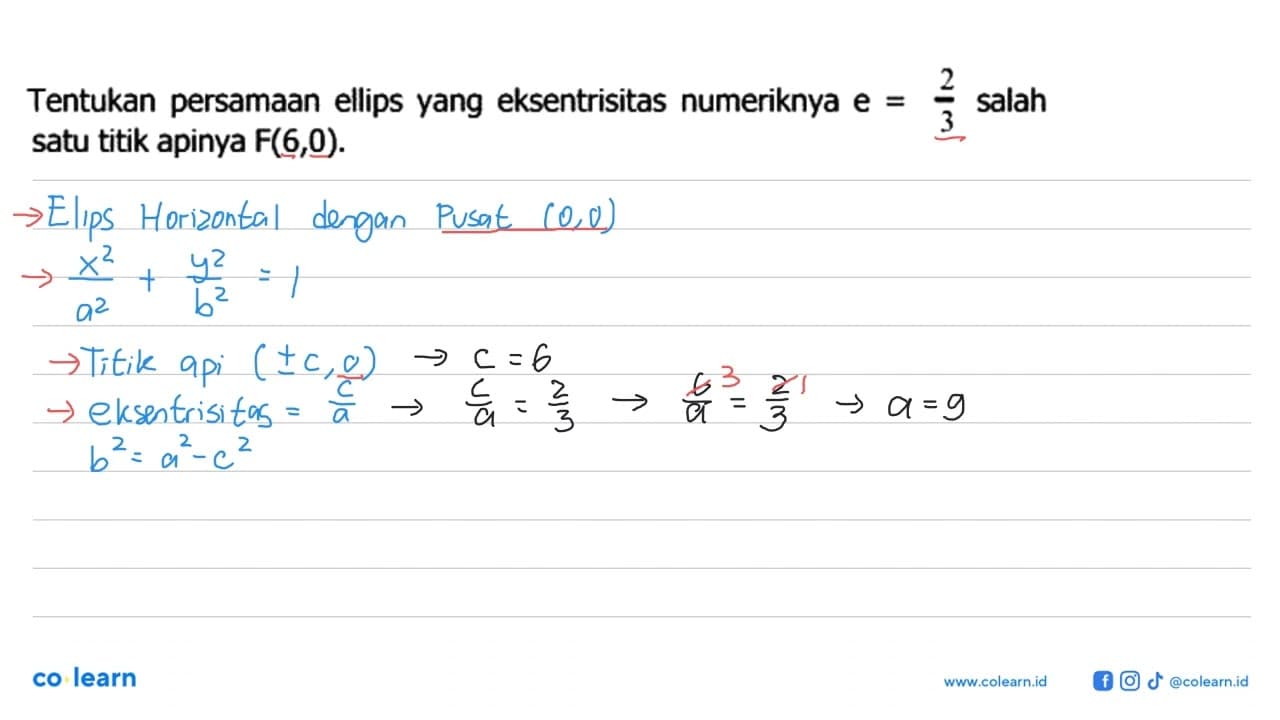 Tentukan persamaan ellips yang eksentrisitas numeriknya e = 2/3 salah
satu titik apinya F(6,0).
→ Elips Horizontal dengan Pusat (0,0)
→ x²/a² + y²/b² = 1
→ Titik api (±c, 0) → c = 6
→ eksentrisitas = c/a → c/a = 2/3 → 6/a 3 = 2/3 1 → a = 9
b² = a² - c²
co learn
www.colearn.id @colearn.id